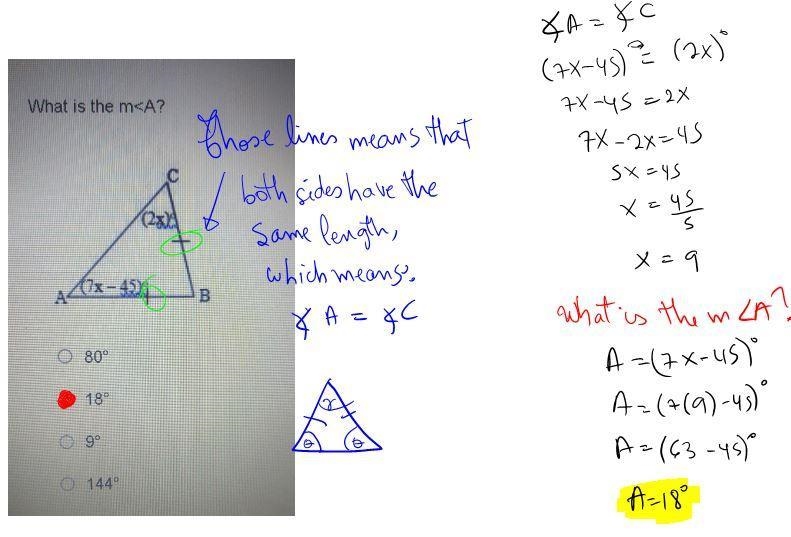 What is the m<A?
C
(2x)°
(7x – 45)°
A
B
80°
18°
9°
144°
Those lines means that
both sides have the
same length,
which means.
∡ A = ∡C
x
θ
θ
∡A = ∡C
(7x-45)° = (2x)°
7x-45 = 2x
7x-2x=45
5x=45
x = 45/5
x = 9
What is the m∠A?
A =(7x-45)°
A=(7(9)-45)°
A=(63-45)°
A=18°